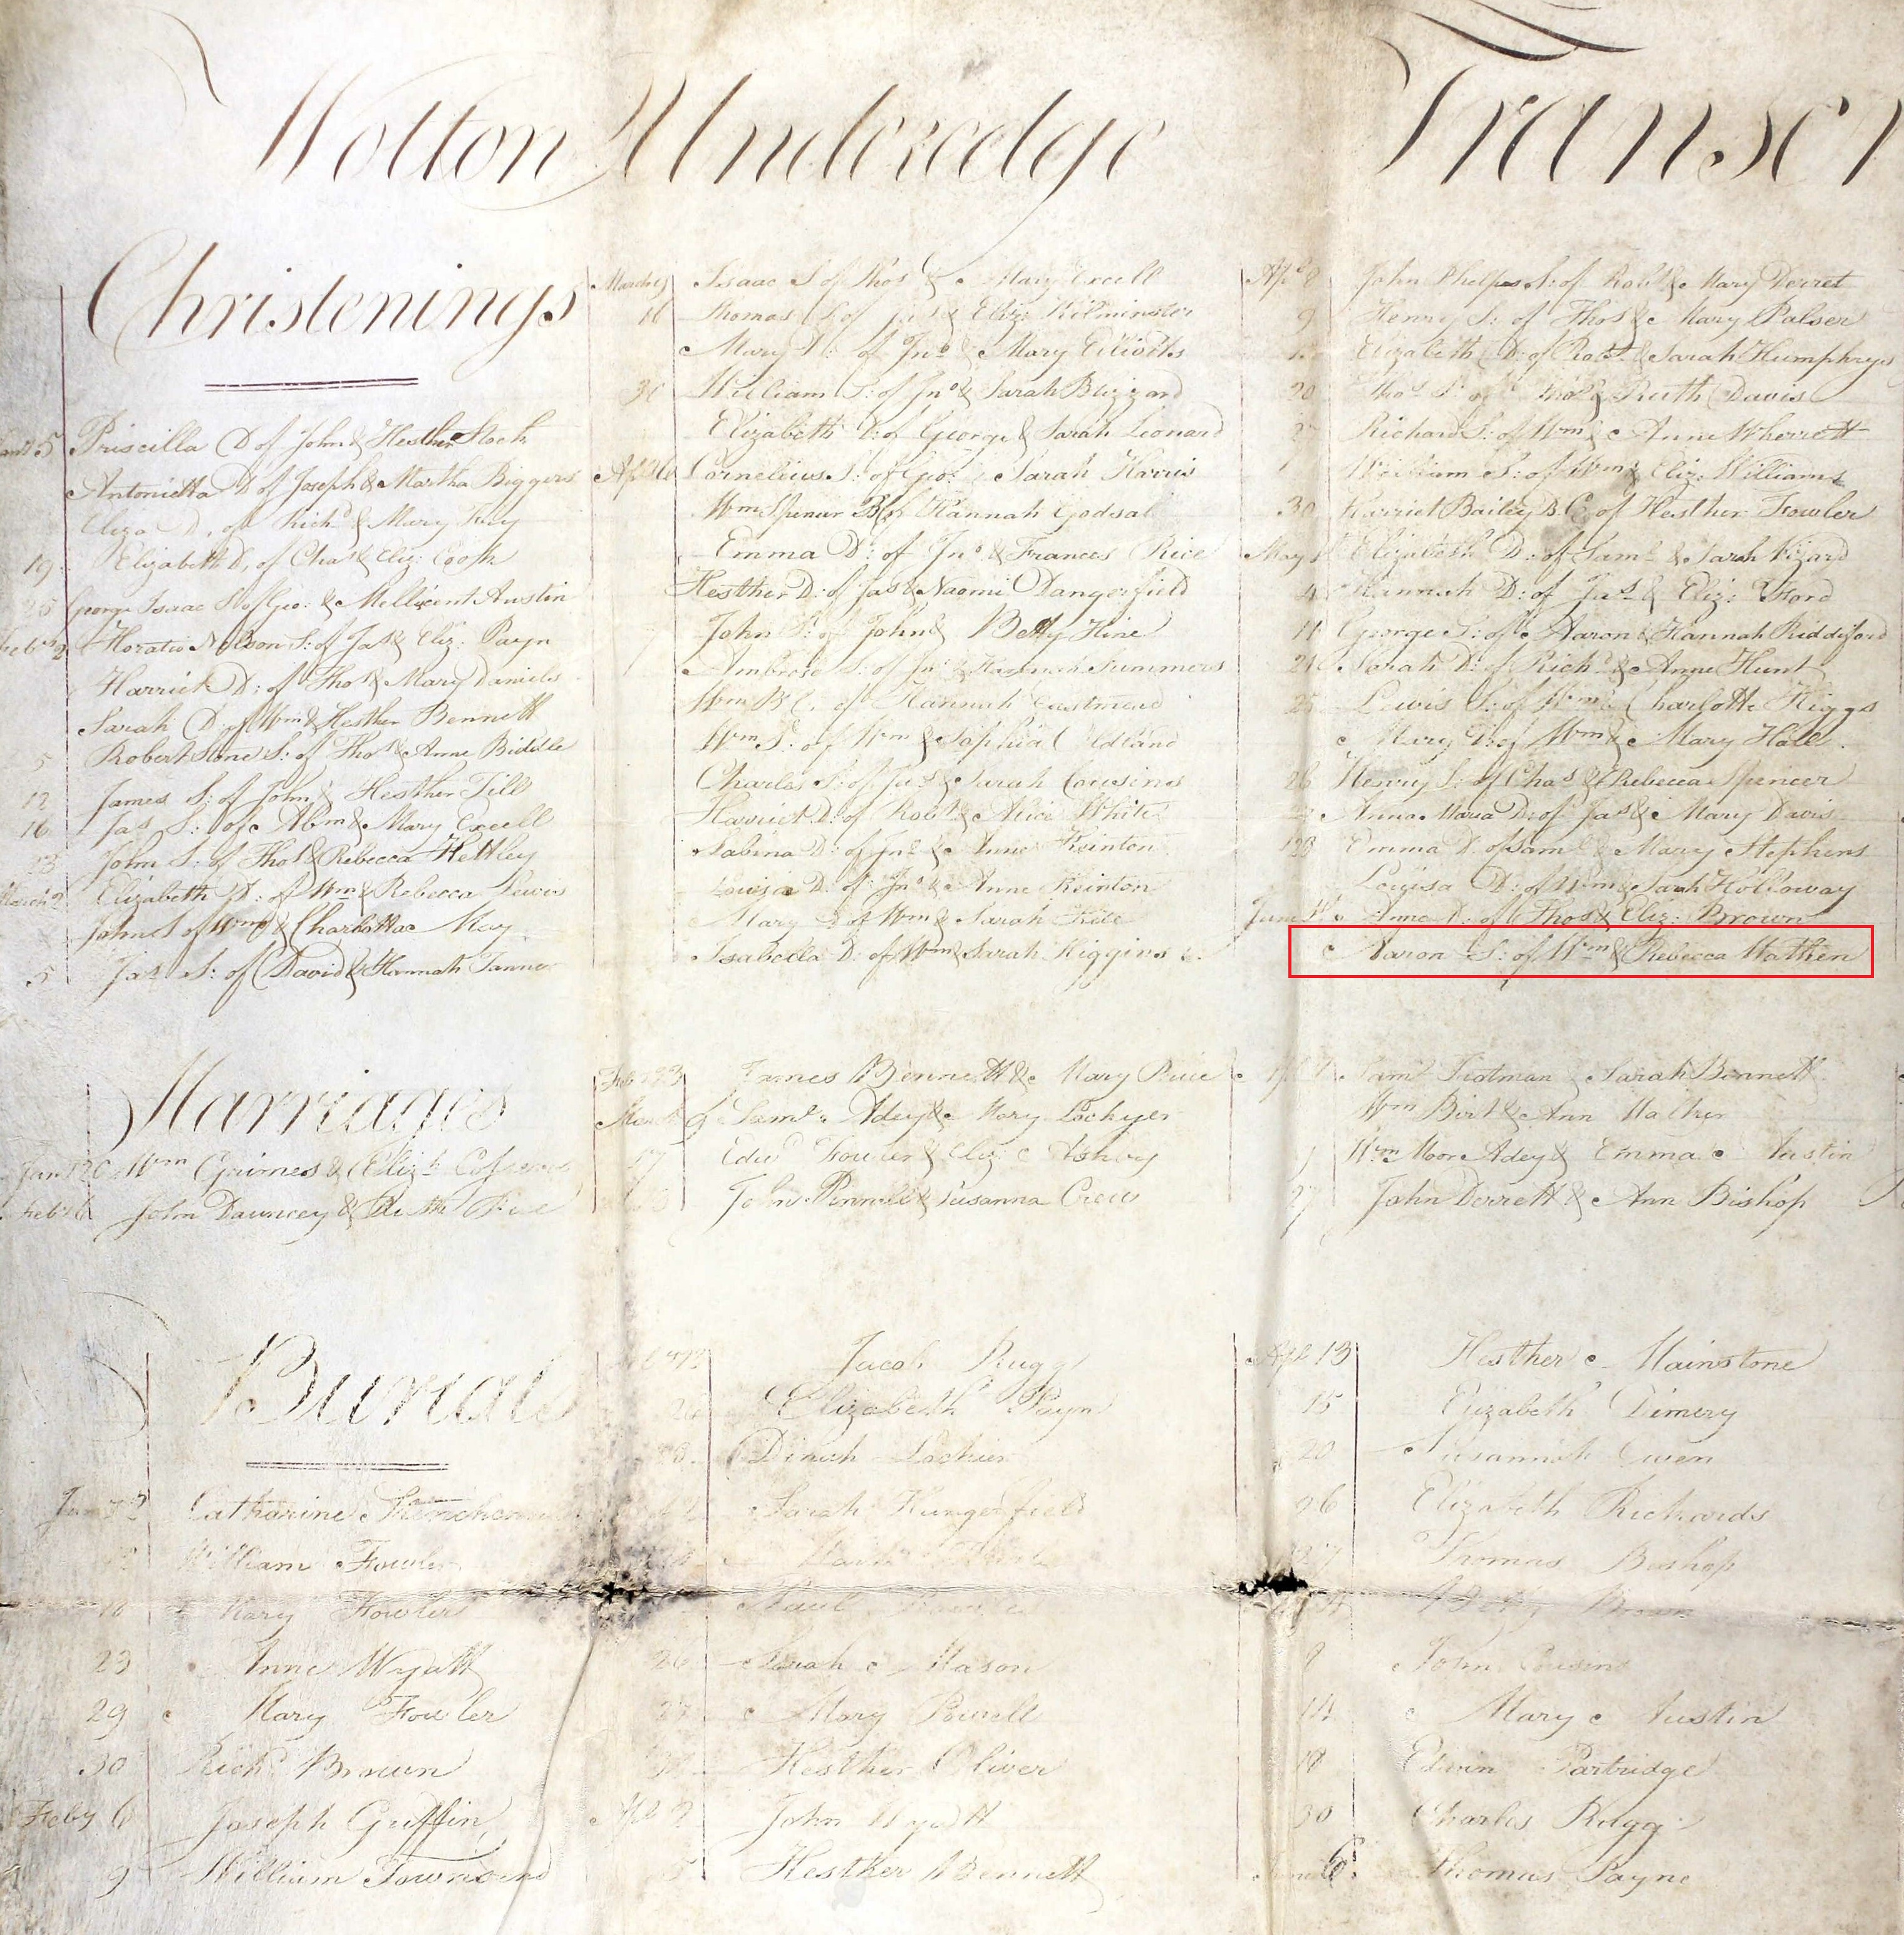 Wotton Underedge Transcr
Christenings
5 Priscilla D of John & Hesther Stock
Antonietta D of Joseph & Martha Biggers
Eliza D. of Richd & Mary
19 Elizabeth D. of Chas & Eliz: Cook
25 George Isaac S of Geo: & Mellicent Austin
2 Horatio Nelson S: of Jas & Eliz: Payn
Harriet D: of Thos & Mary Daniels
Sarah D: of Wm & Hesther Bennett
5 Robert Stone S: of Thos & Anne Biddle
12 James S: of John & Hesther Till
16 Jas S: of Abm & Mary Excell
23 John S: of Thos & Rebecca Hettley
March 2 Elizabeth D: of Wm & Rebecca Lewis
John S of Wm & Charlotta May
5 Jas S: of David & Hannah Tanner
March 9 Isaac S of Thos & Mary Excell
16 Thomas S of Jas & Eliz: Kilminster
Mary D: of Jno & Mary Elliotts
30 William S: of Jno & Sarah Blizzard
Elizabeth D: of George & Sarah Leonard
Apl 6 Cornelius S: of Geo: Sarah Harris
Wm Spencer of Hannah Godsal
Emma D: of Jno & Frances Rice
Hesther D: of Jas & Naomi Dangerfield
John S: of John & Betty Hine
7 Ambrose S: of Jno & Hannah Summers
Wm B C. of Hannah Eastmend
Wm S: of Wm & Sophia Oldland
Charles S: of Jas & Sarah Cousins
Harriet D: of Robt & Alice White
Sabina D: of Jno & Anne Keinton
Louisa D: of Jno & Anne Keinton
Mary D of Wm & Sarah
Isabella D: of Wm & Sarah Higgins
Apl 8 John Phelps S: of Robt & Mary Derret
9 Henry S: of Thos & Mary Palser
Elizabeth D: of Robt & Sarah Humphrys
20 Thos S: of Thos & Ruth Davis
27 Richard S: of Wm & Anne Wherrett
William S: of Wm & Eliz: Williams
30 Harriet Bailey B C: of Hesther Fowler
May 1 Elizabeth D: of Saml & Sarah Vizard
4 Hannah D: of Jas & Eliz: Ford
11 George S: of Aaron & Hannah Riddiford
21 Sarah D: of Richd & Anne Hunt
25 Lewis S: of Wm & Charlotte Higgs
Mary D: of Wm & Mary Hall.
26 Henry S: of Chas & Rebecca Spencer
Anna Maria D: of Jas & Mary Davis
28 Emma D. of Saml & Mary Stephens
Louisa D: of Wm & Sarah Holloway
June 1st Anne D: of Thos & Eliz: Brown
Aaron S: of Wm & Rebecca Wathen
Marriages
Wm Grimes & Elizh
John Dauncey & Ruth
Feb 23 James Bennett & Mary Rice
March Saml Adey & Mary Lockyer
17 Edwd Fowler & Eliz: Ashby
John Pennell & Susanna Crew
Saml Trotman & Sarah Bennett
Wm Birt & Ann Walker
Wm Moore Adey & Emma Austin
27 John Derrett & Ann Bishop
Burials
Catharine
William Fowler
16 Mary Fowler
23 Anne Wyatt
29 Mary Fowler
30 Richd Brown
Feby 6 Joseph Griffin
9 William Townsend
Jacob Rugg
Elizabeth Payn
Dinah Lockier
Sarah Hungerfield
26 Sarah Mason
27 Mary Powell
Hesther Oliver
Apl 2 John Wyatt
5 Hesther Bennett
Apl 13 Hesther Mainstone
15 Elizabeth Dimery
20 Susannah Owen
26 Elizabeth Richards
27 Thomas Bishop
Betty Brown
9 John Cousins
14 Mary Austin
18 Edwin Partridge
30 Charles Rugg
June 6 Thomas Payne